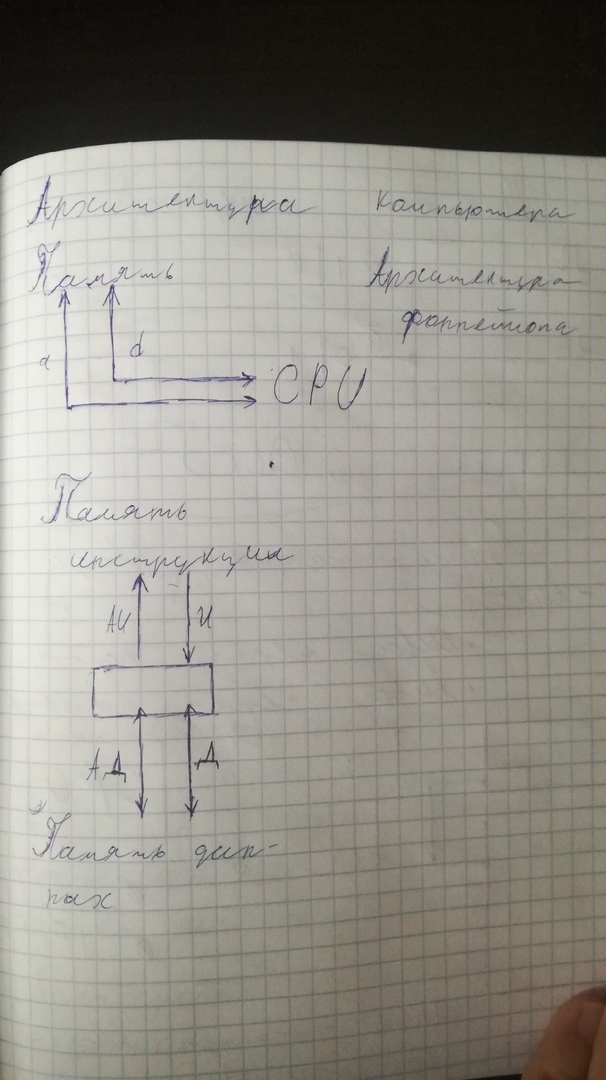 Архитектура Компьютера
Память
Архитектура
фоннеймона
a
d
CPU
Память
инструкции
АИ
И
АД
Д
Память дан-
ных